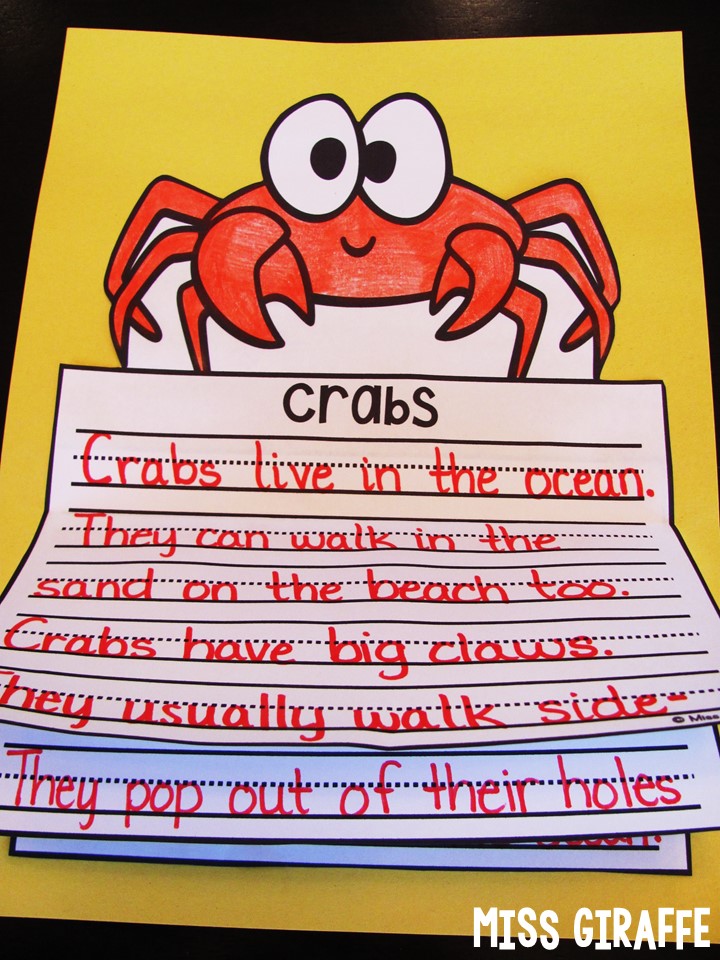 crabs
Crabs live in the ocean.
They can walk in the
sand on the beach too.
Crabs have big claws.
They usually walk side-
© Miss
They pop out of their holes
ocean.
MISS GIRAFFE